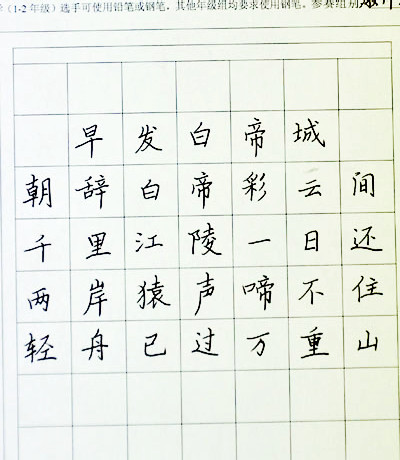 （1-2年级）选手可使用铅笔或钢笔，其他年级组均要求使用钢笔。参赛组别
早发白帝城
朝辞白帝彩云间
千里江陵一日还
两岸猿声啼不住
轻舟已过万重山